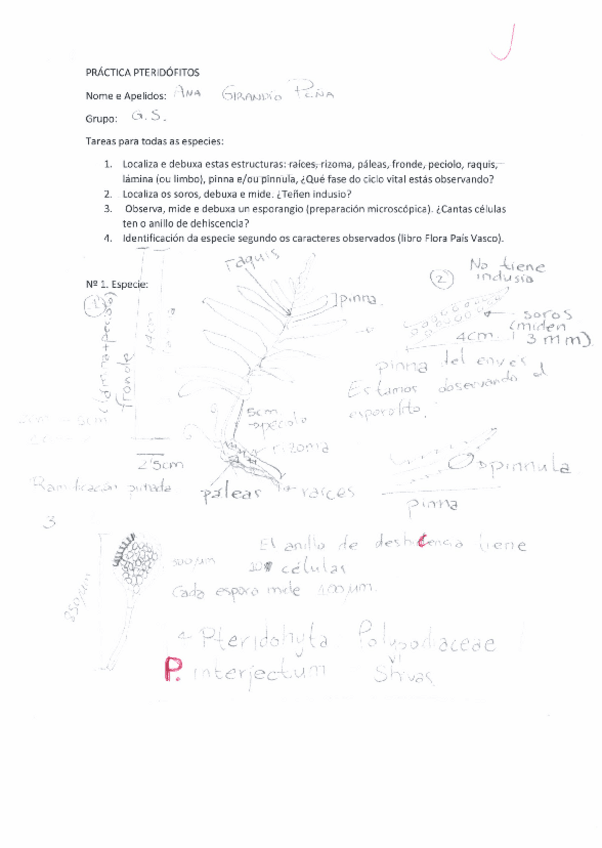 PRÁCTICA PTERIDÓFITOS
Nome e Apelidos: ANA GIRANDÍO PEÑA
Grupo: G.S.
Tareas para todas as especies:
1. Localiza e debuxa estas estructuras: raíces, rizoma, páleas, fronde, peciolo, raquis,
lámina (ou limbo), pinna e/ou pinnula, ¿Qué fase do ciclo vital estás observando?
2. Localiza os soros, debuxa e mide. ¿Teñen indusio?
3. Observa, mide e debuxa un esporangio (preparación microscópica). ¿Cantas células
ten o anillo de dehiscencia?
4. Identificación da especie segundo os caracteres observados (libro Flora País Vasco).
Nº 1. Especie:
1
raquis
pinna
fronde
5cm
rizoma
2'5cm
Ramificación pinnada
páleas
raíces
2
No tiene
indusio
soros
(miden
3 mm).
4cm.
pinna del envés
Estamos observando el
esporofito.
pinnula
pinna
3
El anillo de deshicencia tiene
células
Cada espora mide 100 µm.
4 Pteridohyta Polypodiaceae
P. interjectum Shivas